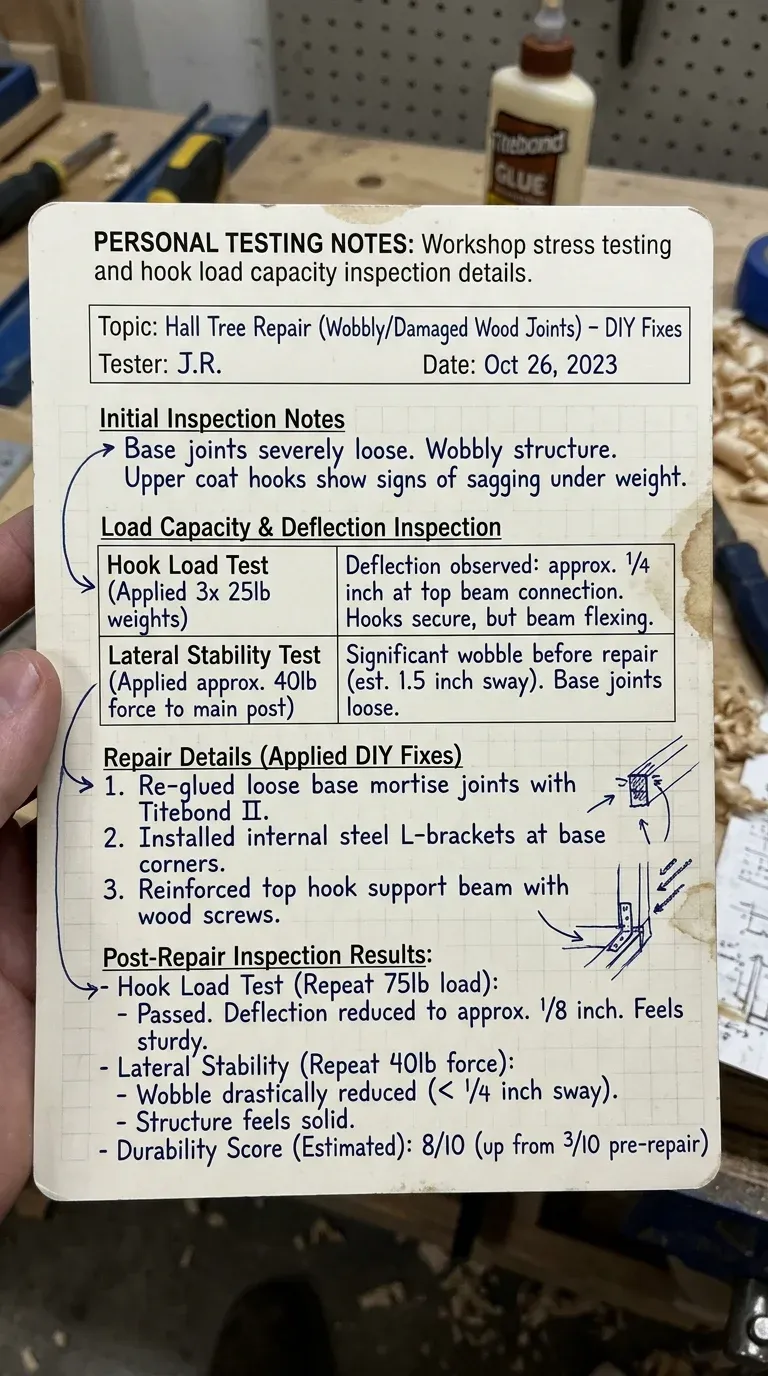 Titebond
GLUE
PERSONAL TESTING NOTES: Workshop stress testing
and hook load capacity inspection details.
Topic: Hall Tree Repair (Wobbly/Damaged Wood Joints) – DIY Fixes
Tester: J.R. Date: Oct 26, 2023
Initial Inspection Notes
Base joints severely loose. Wobbly structure.
Upper coat hooks show signs of sagging under weight.
Load Capacity & Deflection Inspection
Hook Load Test
(Applied 3x 25lb
weights)
Deflection observed: approx. 1/4
inch at top beam connection.
Hooks secure, but beam flexing.
Lateral Stability Test
(Applied approx. 40lb
force to main post)
Significant wobble before repair
(est. 1.5 inch sway). Base joints
loose.
Repair Details (Applied DIY Fixes)
1. Re-glued loose base mortise joints with
Titebond II.
2. Installed internal steel L-brackets at base
corners.
3. Reinforced top hook support beam with
wood screws.
Post-Repair Inspection Results:
- Hook Load Test (Repeat 75lb load):
- Passed. Deflection reduced to approx. 1/8 inch. Feels
sturdy.
- Lateral Stability (Repeat 40lb force):
- Wobble drastically reduced (< 1/4 inch sway).
- Structure feels solid.
- Durability Score (Estimated): 8/10 (up from 3/10 pre-repair)